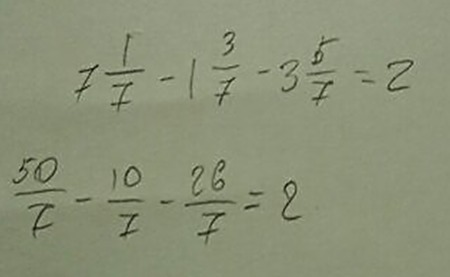 7 1/7 - 1 3/7 - 3 5/7 = 2
50/7 - 10/7 - 26/7 = 2